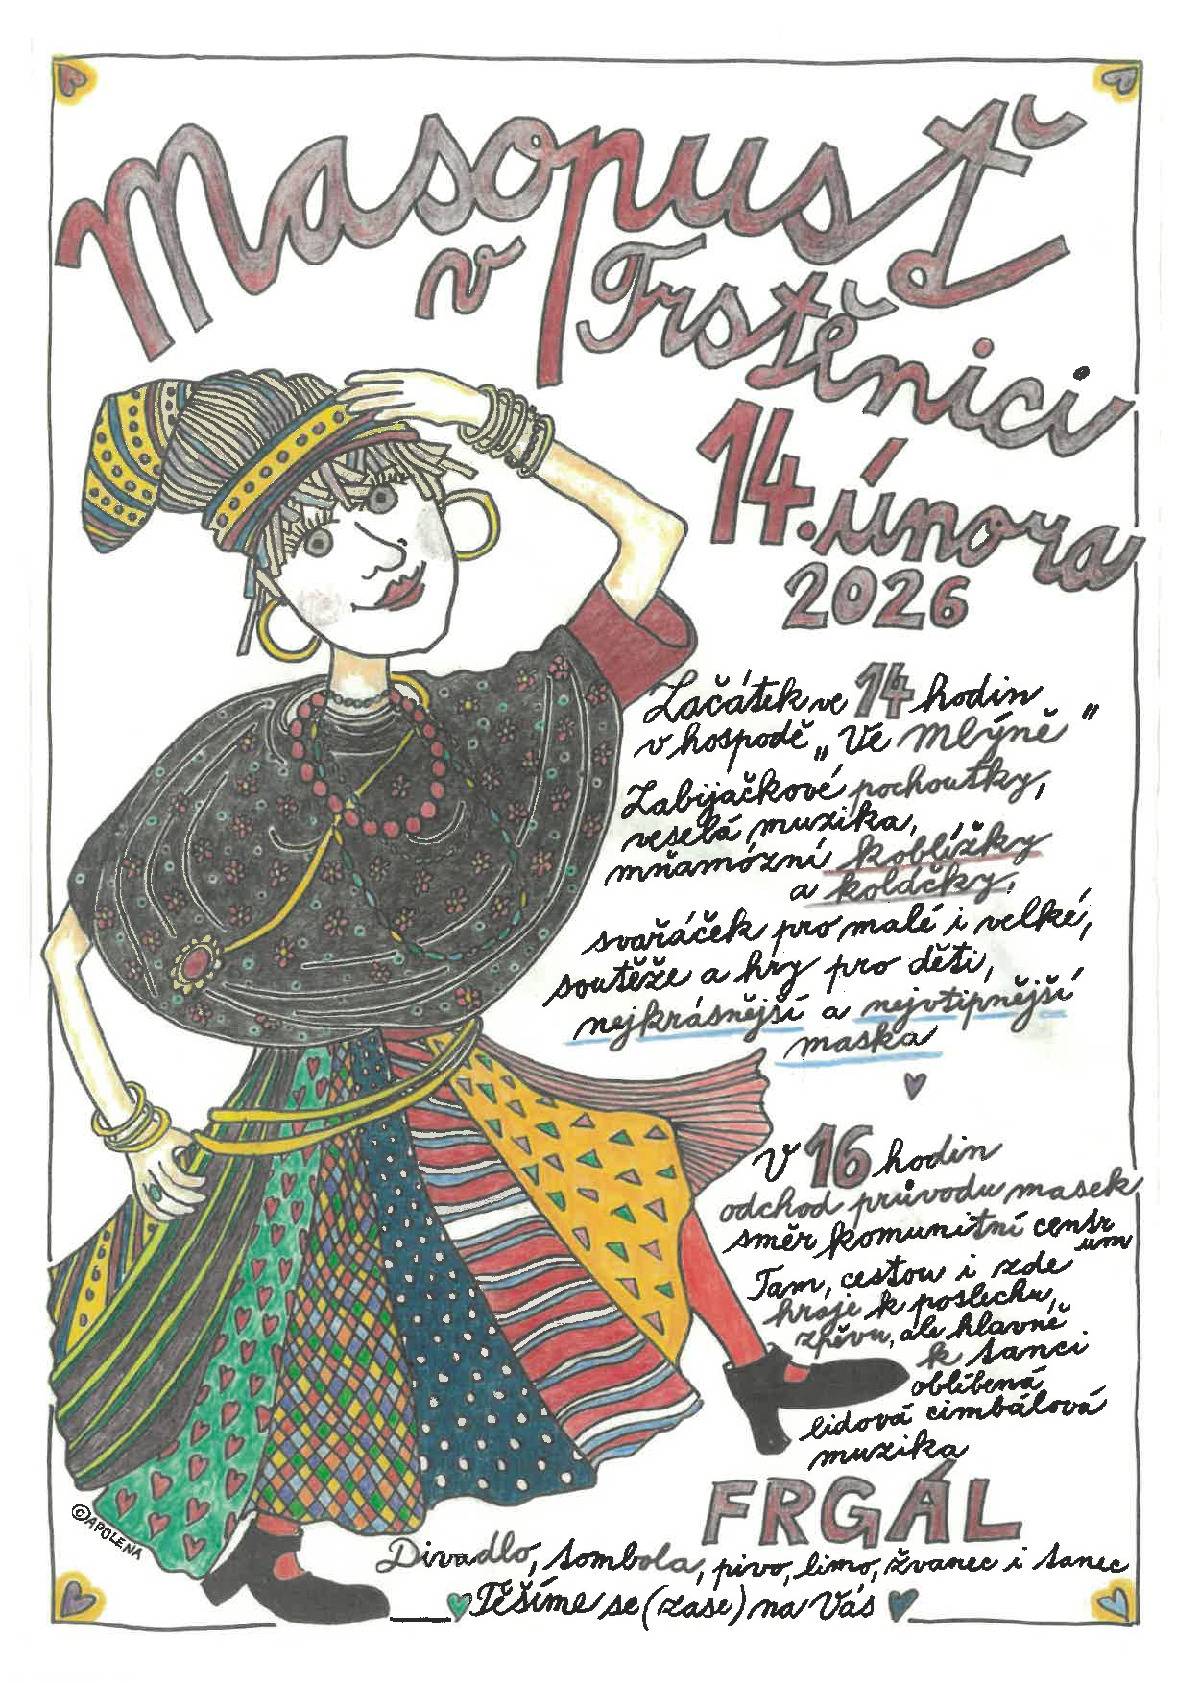 Masopusť
v Trstěnici
14. února
2026
Začátek ve 14 hodin
v hospodě „Ve Mlýně"
Zabijačkové pochoutky,
veselá muzika,
mňamózní koblížky
a koláčky,
svařáček pro malé i velké,
soutěže a hry pro děti,
nejkrásnější a nejvtipnější
maska
V 16 hodin
odchod průvodu masek
směr komunitní centrum
Tam, cestou i zde
hraje k poslechu,
zpěvu, ale hlavně
k tanci
oblíbená
lidová cimbálová
muzika
FRGÁL
©APOLENA
Divadlo, tombola, pivo, limo, žvanec i tanec
Těšíme se (zase) na Vás